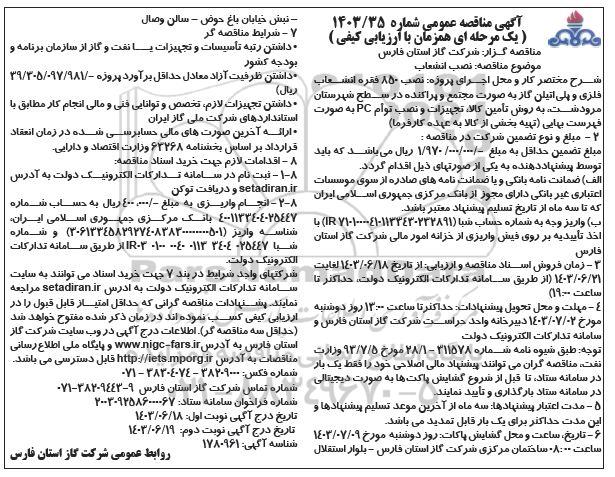 آگهی مناقصه عمومی شماره ۱۴۰۳/۳۵
( یک مرحله ای همزمان با ارزیابی کیفی )
مناقصه گزار: شرکت گاز استان فارس
موضوع مناقصه: نصب انشعاب
شرح مختصر کار و محل اجرای پروژه: نصب ۸۵۰ فقره انشعاب
فلزی و پلی اتیلن گاز به صورت مجتمع و پراکنده در سطح شهرستان
مرودشت، به روش تأمین کالا، تجهیزات و نصب توأم PC به صورت
فهرست بهایی (تهیه بخشی از کالا به عهده کارفرما)
۲ – مبلغ و نوع تضمین شرکت در مناقصه :
مبلغ تضمین حداقل به مبلغ -/۱/۹۷۰/۰۰۰/۰۰۰ ریال می باشد که باید
توسط پیشنهاددهنده به یکی از صورتهای ذیل اقدام گردد.
الف) ضمانت نامه بانکی و یا ضمانت نامه های صادره از سوی موسسات
اعتباری غیر بانکی دارای مجوز از بانک مرکزی جمهوری اسلامی ایران
که تا سه ماه از تاریخ تسلیم پیشنهاد معتبر باشد.
ب) واریز وجه به شماره حساب شبا
اخذ تأییدیه بر روی فیش واریزی از خزانه امور مالی شرکت گاز استان
فارس
۳ – زمان فروش اسناد مناقصه و ارزیابی: از تاریخ ۱۴۰۳/۰۶/۱۸ لغایت
۱۴۰۳/۰۶/۲۱ (از طریق سامانه تدارکات الکترونیک دولت، حداکثر تا
ساعت ۱۹:۰۰)
۴ – مهلت و محل تحویل پیشنهادات: حداکثر تا ساعت ۱۳:۰۰ روز دوشنبه
مورخ ۱۴۰۳/۰۷/۰۲ دبیرخانه واحد حراست شرکت گاز استان فارس و
سامانه تدارکات الکترونیک دولت
توجه: طبق شیوه نامه شماره ۳۱۱۵۷۸–۲۸/۱ مورخ ۹۳/۷/۵ وزارت
نفت، مناقصه گران می توانند پیشنهاد مالی اصلاحی خود را فقط یک بار
در سامانه ستاد، تا قبل از شروع گشایش پاکت ها به صورت دیجیتالی
در سامانه ستاد بارگذاری و تأیید نمایند.
۵ – مدت اعتبار پیشنهادها: سه ماه از آخرین موعد تسلیم پیشنهادها و
این مدت حداکثر برای یک بار قابل تمدید می باشد.
۶ – تاریخ، ساعت و محل گشایش پاکات: روز دوشنبه مورخ ۱۴۰۳/۰۷/۰۹
ساعت ۰۸:۰۰ ساختمان مرکزی شرکت گاز استان فارس – بلوار استقلال
– نبش خیابان باغ حوض – سالن وصال
۷ – شرایط مناقصه گر
•داشتن رتبه تأسیسات و تجهیزات یا نفت و گاز از سازمان برنامه و
بودجه کشور
•داشتن ظرفیت آزاد معادل حداقل برآورد پروژه -/۳۹/۳۰۵/۰۹۷/۹۸۱
ریال)
•داشتن تجهیزات لازم، تخصص و توانایی فنی و مالی انجام کار مطابق با
استانداردهای شرکت ملی گاز ایران
•ارائه آخرین صورت های مالی حسابرسی شده در زمان انعقاد
قرارداد بر اساس بخشنامه ۶۳۲۶۸ وزارت اقتصاد و دارایی.
۸ – اقدامات لازم جهت خرید اسناد مناقصه:
۸–۱ – ثبت نام در سامانه تدارکات الکترونیک دولت به آدرس
setadiran.ir و دریافت توکن
۸–۲ – انجام واریزی به مبلغ -/۴۰۰/۰۰۰ ریال به حساب شماره
بانک مرکزی جمهوری اسلامی ایران،
شناسه واریز و شماره
شبا از طریق سامانه تدارکات
الکترونیک دولت.
شرکتهای واجد شرایط در بند ۷ جهت خرید اسناد می توانند به سایت
سامانه تدارکات الکترونیک دولت به آدرس setadiran.ir مراجعه
نمایند. پیشنهادات مناقصه گرانی که حداقل امتیاز قابل قبول را در
ارزیابی کیفی کسب نموده اند در زمان ذکر شده مفتوح خواهد شد
(حداقل سه مناقصه گر). اطلاعات درج آگهی در وب سایت شرکت گاز
استان فارس به آدرس www.nigc-fars.ir و پایگاه ملی اطلاع رسانی
مناقصات به آدرس http://iets.mporg.ir قابل دسترسی می باشد.
شماره فکس: ۳۸۲۰۹۰۰۰ – ۳۸۳۰۴۰۷۴ – ۰۷۱
شماره تماس شرکت گاز استان فارس ۹–۳۸۲۰۹۴۴۳–۰۷۱
شماره فراخوان سامانه ستاد: ۲۰۰۳۰۹۲۵۸۶۰۰۰۰۶۷
تاریخ درج آگهی نوبت اول: ۱۴۰۳/۰۶/۱۸
تاریخ درج آگهی نوبت دوم: ۱۴۰۳/۰۶/۱۹
شناسه آگهی: ۱۷۸۰۹۶۱
روابط عمومی شرکت گاز استان فارس